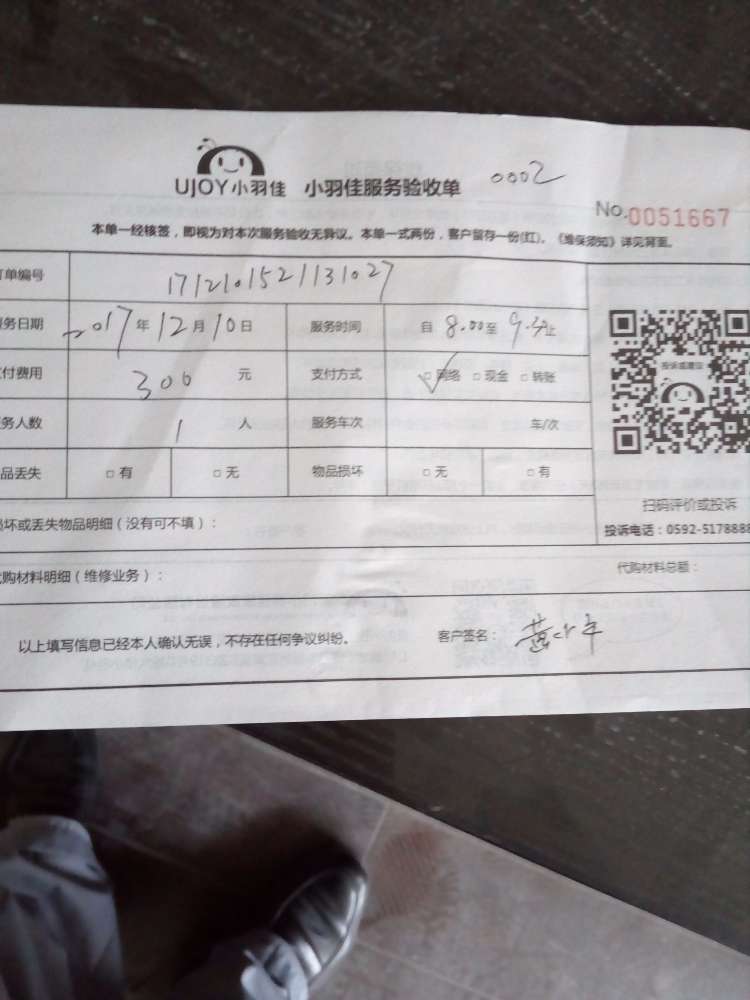 UJOY小羽佳 小羽佳服务验收单 0002
No.0051667
本单一经核签，即视为对本次服务验收无异议。本单一式两份，客户留存一份(红)。《维保须知》详见背面。
单编号 1712101521131027
务日期 2017年12月10日 服务时间 自8.00至9.30止
付费用 300元 支付方式 网络 现金 转账
务人数 1人 服务车次 车/次
品丢失 有 无 物品损坏 无 有
投诉或建议
扫码评价或投诉
投诉电话：0592-5178888
损坏或丢失物品明细（没有可不填）：
代购材料明细（维修业务）： 代购材料总额：
以上填写信息已经本人确认无误，不存在任何争议纠纷。 客户签名：